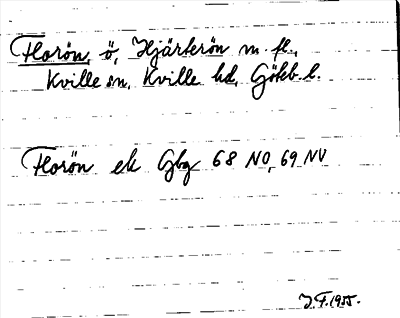 Florön, ö, Hjärterön m. fl.,
Kville sn, Kville hd, Göteb. l.
Florön ek Gbg 68 NO, 69 NV
J.F. 1955.